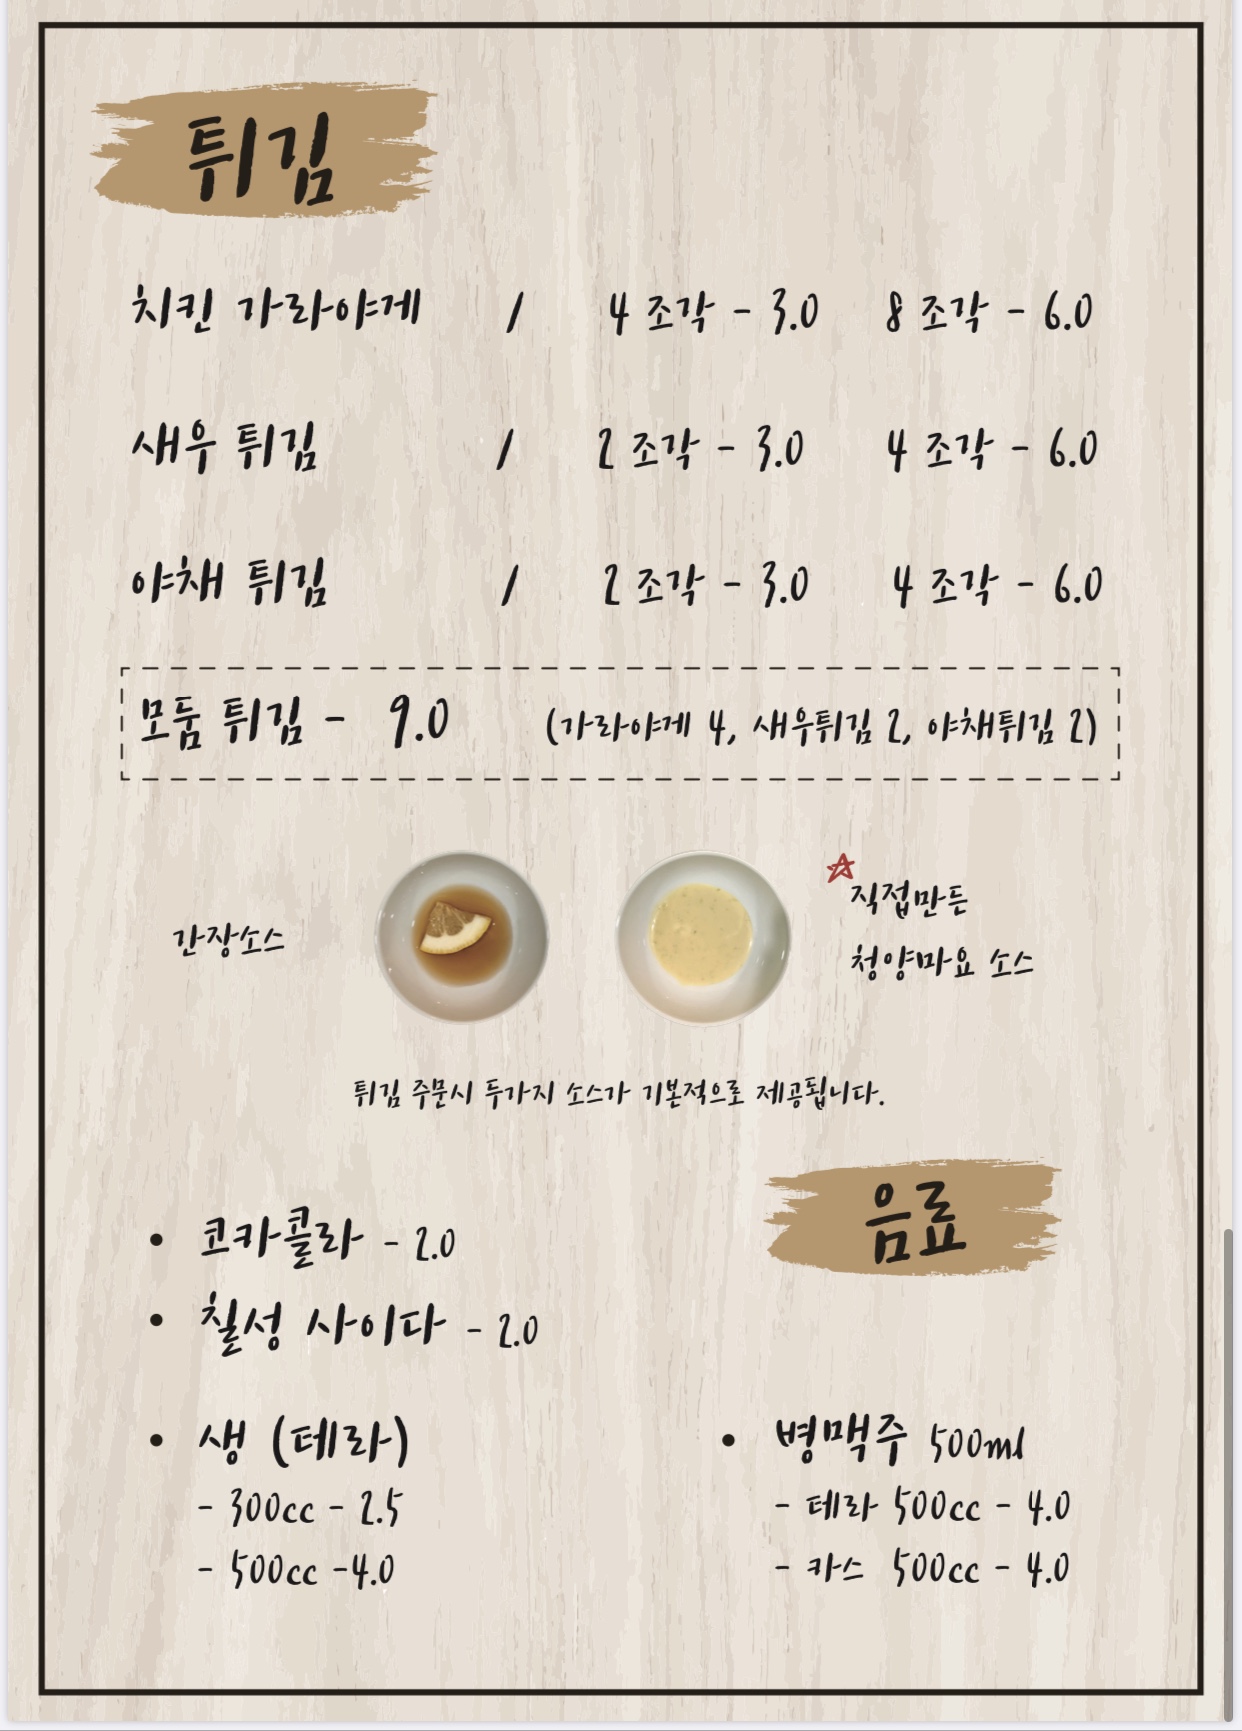 튀김
치킨 가라야게 / 4 조각 - 3.0 8 조각 - 6.0
새우 튀김 / 2 조각 - 3.0 4 조각 - 6.0
야채 튀김 / 2 조각 - 3.0 4 조각 - 6.0
모둠 튀김 - 9.0 (가라야게 4, 새우튀김 2, 야채튀김 2)
간장소스
직접만든
청양마요 소스
튀김 주문시 두가지 소스가 기본적으로 제공됩니다.
음료
• 코카콜라 - 2.0
• 칠성 사이다 - 2.0
• 생 (테라)
- 300cc - 2.5
- 500cc -4.0
• 병맥주 500ml
- 테라 500cc - 4.0
- 카스 500cc - 4.0